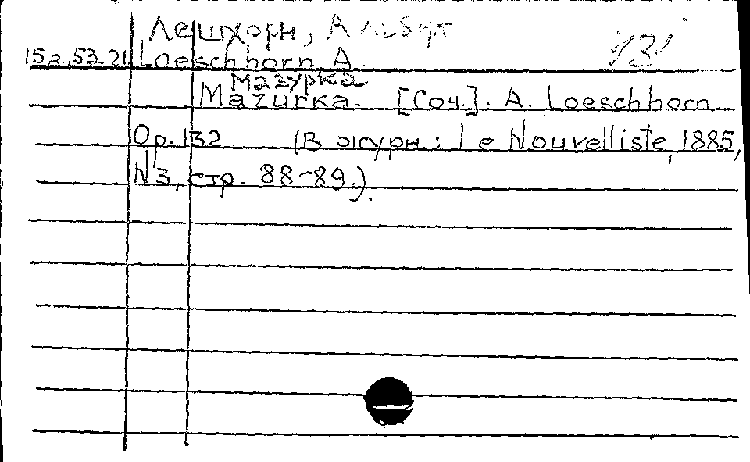 Лешхорн, Альбут
131
15a.53.21 Loeschhorn A.
Мазурка
Mazurka. [Соч]. A. Loeschhorn
Op. 132 (В журн: Le Nouvelliste, 1885,
N3, стр. 88-89.).